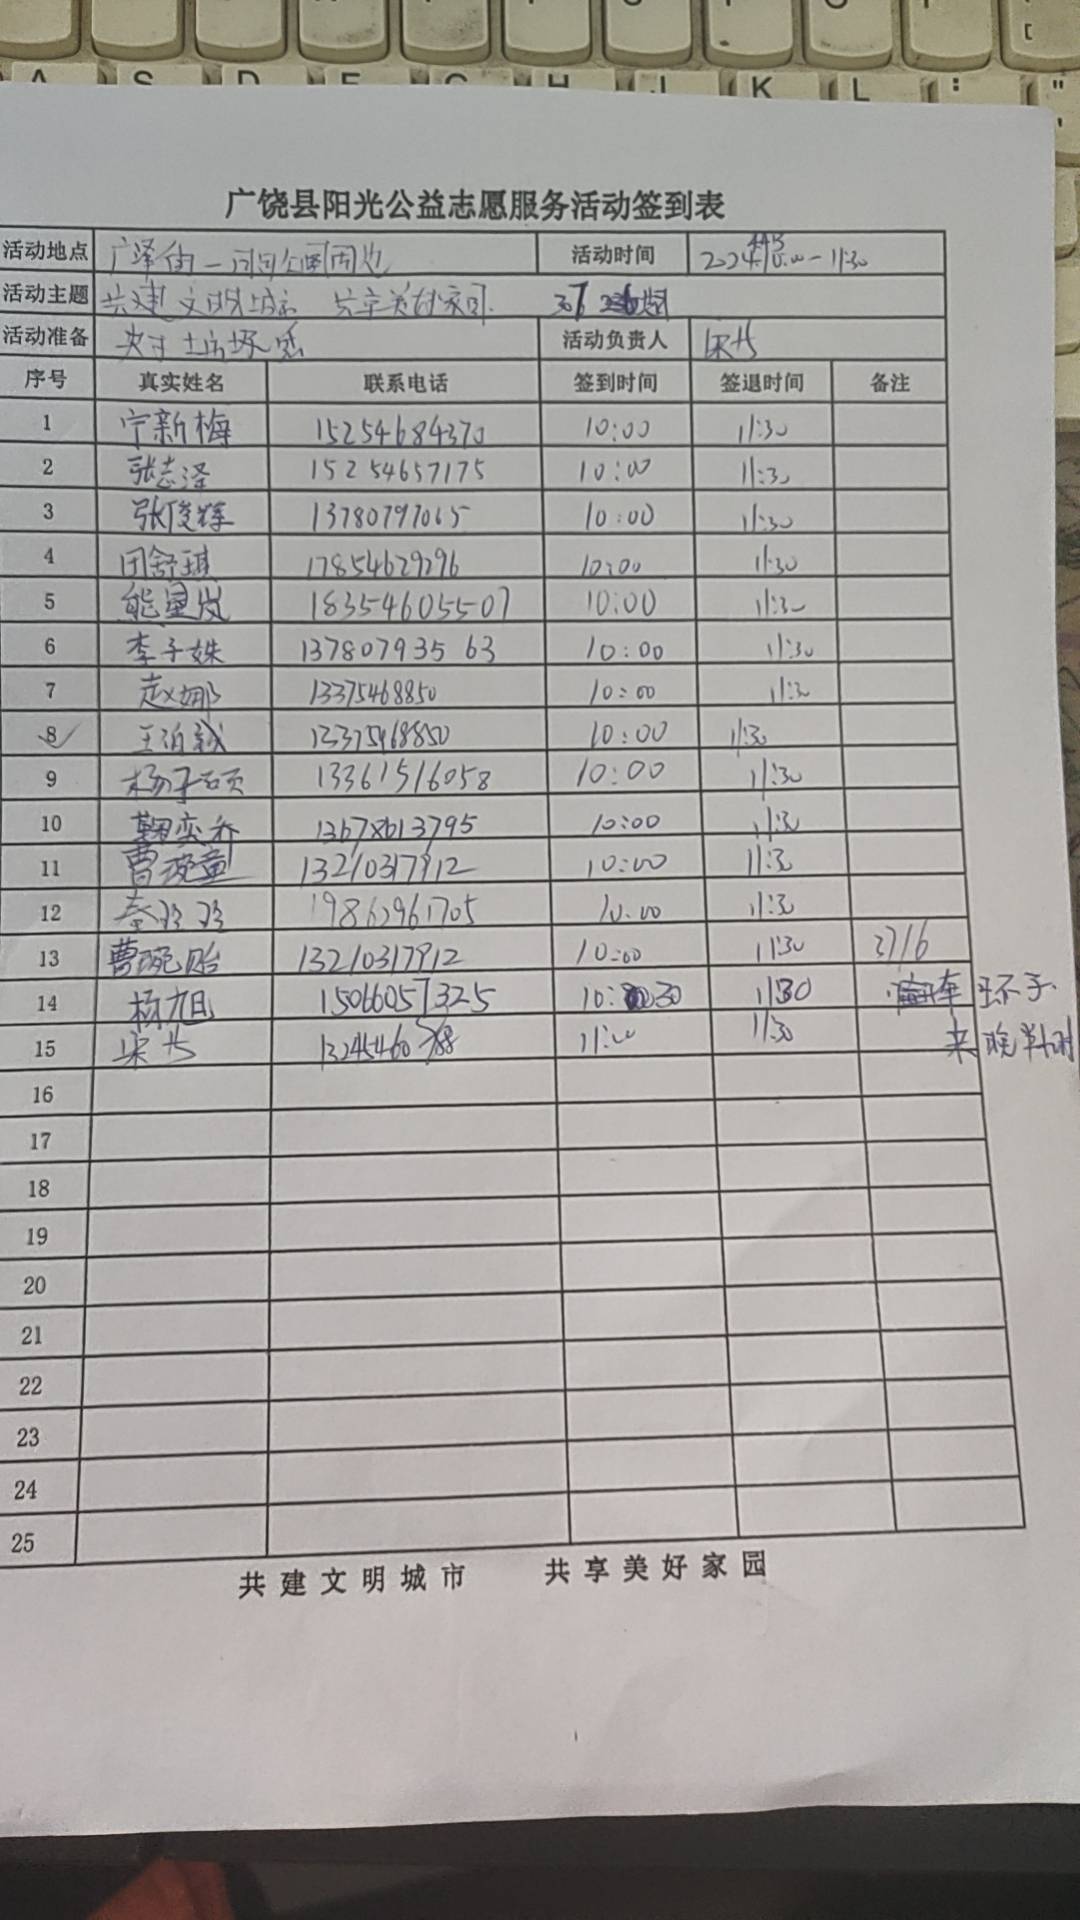 广饶县阳光公益志愿服务活动签到表
活动地点 广泽街一月河公园周边 活动时间 2024 10:00-11:30
活动主题 共建文明城市 共享美好家园. 37
活动准备 活动负责人
序号 真实姓名 联系电话 签到时间 签退时间 备注
1 宁新梅 15254684370 10:00 11:30
2 张志泽 15254657175 10:00 11:30
3 张俊辉 13780797065 10:00 11:30
4 田舒琪 17854629296 10:00 11:30
5 熊星岚 18354605507 10:00 11:30
6 李子姝 13780793563 10:00 11:30
7 赵娜 13375468850 10:00 11:30
8 王泊 13375468850 10:00 11:30
9 杨子硕 13361516058 10:00 11:30
10 鞠奕乔 13678613795 10:00 11:30
11 曹琬童 13210317912 10:00 11:30
12 秦玲玲 19862961705 10:00 11:30
13 曹琬贻 13210317912 10:00 11:30 3716
14 杨旭 15066057325 10:30 11:30
15 11:00 11:30 来晚半小时
16
17
18
19
20
21
22
23
24
25
共建文明城市 共享美好家园
A S D F G H J K L : "